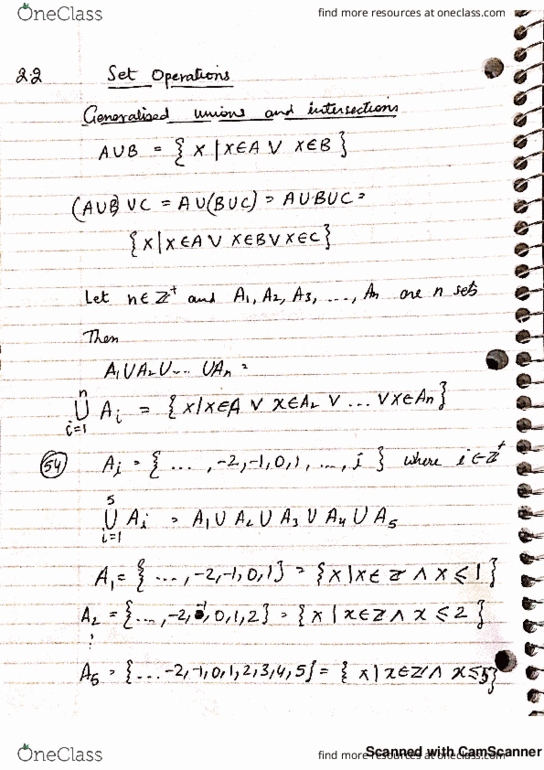 OneClass
find more resources at oneclass.com
2.2 Set Operations
Generalised unions and intersections
A∪B = { x | x∈A ∨ x∈B }
(A∪B)∪C = A∪(B∪C) = A∪B∪C =
{x | x∈A ∨ x∈B ∨ x∈C}
Let n∈Z⁺ and A₁, A₂, A₃, ..., Aₙ are n sets
Then
A₁∪A₂∪... ∪Aₙ =
n
∪ Aᵢ = {x | x∈A ∨ x∈A₂ ∨ ... ∨ x∈Aₙ}
i=1
54 Aᵢ = { ..., -2, -1, 0, 1, ..., i } where i∈Z⁺
5
∪ Aᵢ = A₁ ∪ A₂ ∪ A₃ ∪ A₄ ∪ A₅
i=1
A₁ = { ..., -2, -1, 0, 1} = {x | x∈Z ∧ x ≤ 1}
A₂ = {..., -2, -1, 0, 1, 2} = {x | x∈Z ∧ x ≤ 2}
⋮
A₅ = {... -2, -1, 0, 1, 2, 3, 4, 5} = { x | x∈Z ∧ x ≤ 5}
OneClass
find more resources at oneclass.com
Scanned with CamScanner